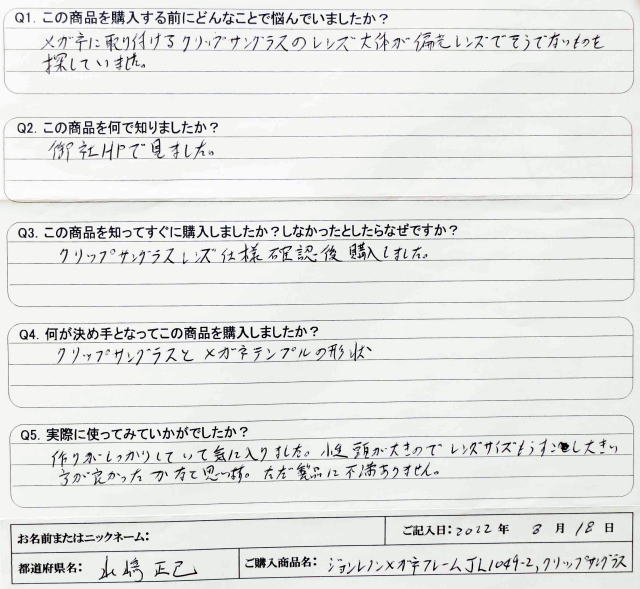 Q1. この商品を購入する前にどんなことで悩んでいましたか？
メガネに取り付けるクリップサングラスのレンズ大体が偏光レンズでそうでないものを
探していました。
Q2. この商品を何で知りましたか？
御社HPで見ました。
Q3. この商品を知ってすぐに購入しましたか？しなかったとしたらなぜですか？
クリップサングラスレンズ仕様確認後購入しました。
Q4. 何が決め手となってこの商品を購入しましたか？
クリップサングラスとメガネテンプルの形状
Q5. 実際に使ってみていかがでしたか？
作りがしっかりしていて気に入りました。小生頭が大きのでレンズサイズもうすこし大きい
方が良かったかなと思います。ただ製品に不満ありません。
お名前またはニックネーム：
ご記入日：2022年 8月18日
都道府県名： 正己
ご購入商品名：ジョンレノンメガネフレームJL1049-2,クリップサングラス